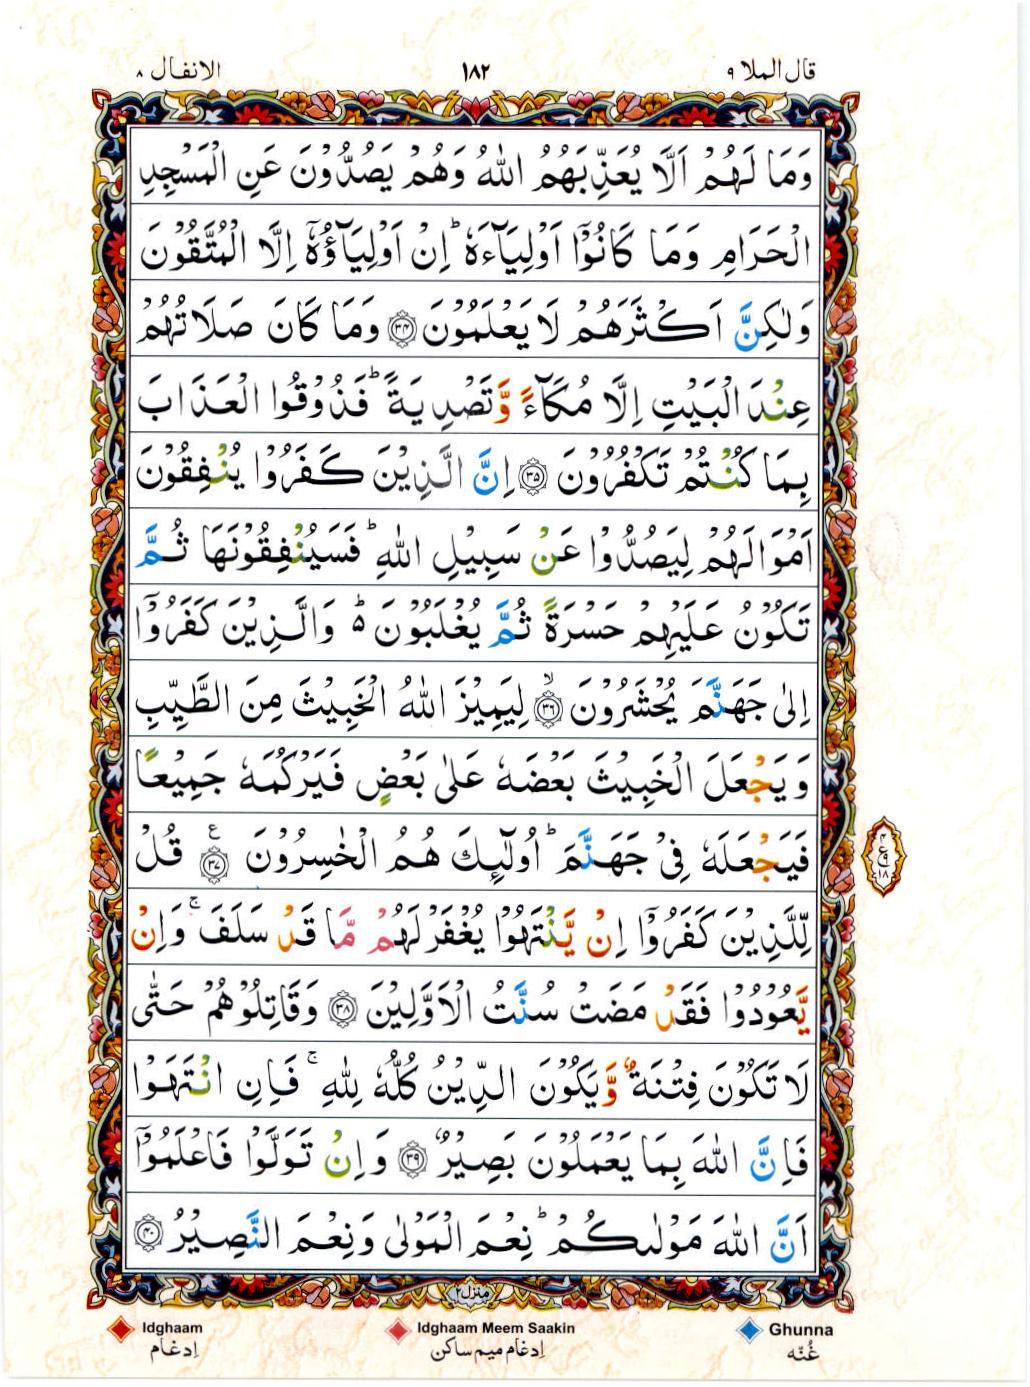 قال الملا ٩
١٨٢
الانفال ٨
وَمَا لَهُمْ اَلَّا يُعَذِّبَهُمُ اللّٰهُ وَهُمْ يَصُدُّوْنَ عَنِ الْمَسْجِدِ
الْحَرَامِ وَمَا كَانُوْۤا اَوْلِيَآءَهٗ ؕ اِنْ اَوْلِيَآؤُهٗۤ اِلَّا الْمُتَّقُوْنَ
وَلٰكِنَّ اَكْثَرَهُمْ لَا يَعْلَمُوْنَ ﴿۳۴﴾ وَمَا كَانَ صَلَاتُهُمْ
عِنْدَ الْبَيْتِ اِلَّا مُكَآءً وَّتَصْدِيَةً ؕ فَذُوْقُوا الْعَذَابَ
بِمَا كُنْتُمْ تَكْفُرُوْنَ ﴿۳۵﴾ اِنَّ الَّذِيْنَ كَفَرُوْا يُنْفِقُوْنَ
اَمْوَالَهُمْ لِيَصُدُّوْا عَنْ سَبِيْلِ اللّٰهِ ؕ فَسَيُنْفِقُوْنَهَا ثُمَّ
تَكُوْنُ عَلَيْهِمْ حَسْرَةً ثُمَّ يُغْلَبُوْنَ ۵ؕ وَالَّذِيْنَ كَفَرُوْۤا
اِلٰى جَهَنَّمَ يُحْشَرُوْنَ ۙ﴿۳۶﴾ لِيَمِيْزَ اللّٰهُ الْخَبِيْثَ مِنَ الطَّيِّبِ
وَيَجْعَلَ الْخَبِيْثَ بَعْضَهٗ عَلٰى بَعْضٍ فَيَرْكُمَهٗ جَمِيْعًا
فَيَجْعَلَهٗ فِىْ جَهَنَّمَ ؕ اُولٰٓئِكَ هُمُ الْخٰسِرُوْنَ ﴿۳۷﴾ ع قُلْ
لِّلَّذِيْنَ كَفَرُوْۤا اِنْ يَّنْتَهُوْا يُغْفَرْ لَهُمْ مَّا قَدْ سَلَفَ ۚ وَاِنْ
يَّعُوْدُوْا فَقَدْ مَضَتْ سُنَّتُ الْاَوَّلِيْنَ ﴿۳۸﴾ وَقَاتِلُوْهُمْ حَتّٰى
لَا تَكُوْنَ فِتْنَةٌ وَّيَكُوْنَ الدِّيْنُ كُلُّهٗ لِلّٰهِ ۚ فَاِنِ انْتَهَوْا
فَاِنَّ اللّٰهَ بِمَا يَعْمَلُوْنَ بَصِيْرٌ ﴿۳۹﴾ وَاِنْ تَوَلَّوْا فَاعْلَمُوْۤا
اَنَّ اللّٰهَ مَوْلٰىكُمْ ؕ نِعْمَ الْمَوْلٰى وَنِعْمَ النَّصِيْرُ ﴿۴۰﴾
منزل ٢
Idghaam
Idghaam Meem Saakin
Ghunna
اِدغَام
اِدغَام میم ساکن
غُنّه